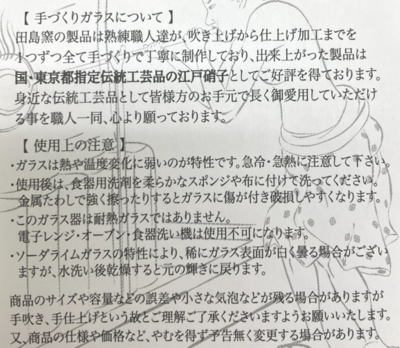 【 手づくりガラスについて 】
田島窯の製品は熟練職人達が、吹き上げから仕上げ加工までを
1つずつ全て手づくりで丁寧に制作しており、出来上がった製品は
国・東京都指定伝統工芸品の江戸硝子としてご好評を得ております。
身近な伝統工芸品として皆様方のお手元で長く御愛用していただけ
る事を職人一同、心より願っております。
【 使用上の注意 】
・ガラスは熱や温度変化に弱いのが特性です。急冷・急熱に注意して下さい。
・使用後は、食器用洗剤を柔らかなスポンジや布に付けて洗ってください。
金属たわしで強く擦ったりするとガラスに傷が付き破損しやすくなります。
・このガラス器は耐熱ガラスではありません。
電子レンジ・オーブン・食器洗い機は使用不可になります。
・ソーダライムガラスの特性により、稀にガラス表面が白く曇る場合がござい
ますが、水洗い後乾燥すると元の輝きに戻ります。
商品のサイズや容量などの誤差や小さな気泡などが残る場合がありますが
手吹き、手仕上げという故とご理解ご了承くださいますようお願いいたします。
又、商品の仕様や価格など、やむを得ず予告無く変更する場合があります。